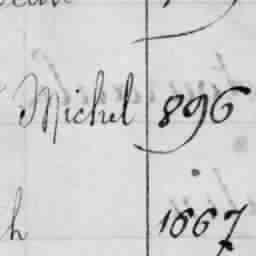 Michel 896
h 1667